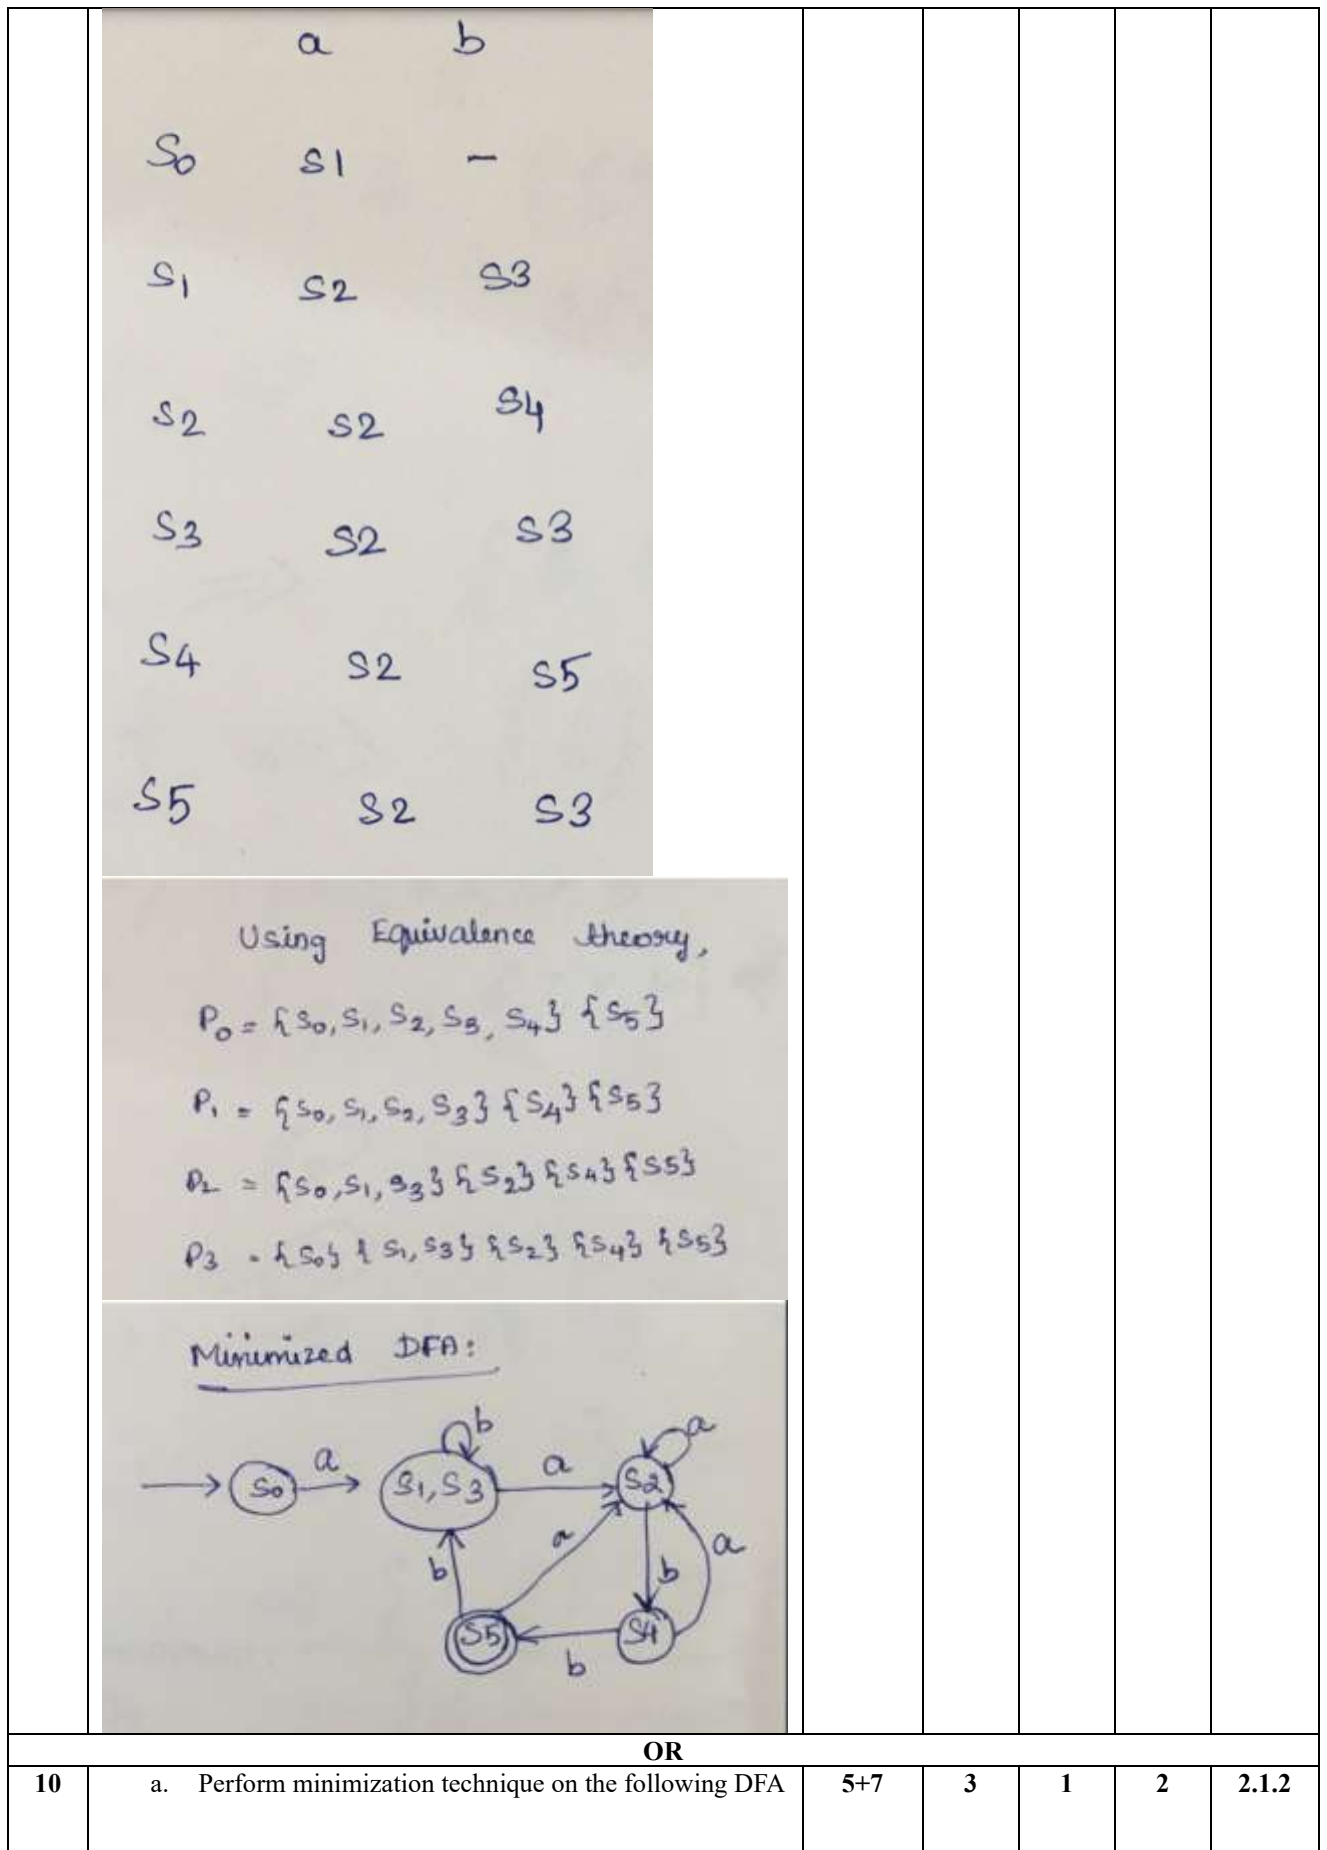 a b
S0 S1 –
S1 S2 S3
S2 S2 S4
S3 S2 S3
S4 S2 S5
S5 S2 S3
Using Equivalence theory,
P0 = {S0, S1, S2, S3, S4} {S5}
P1 = {S0, S1, S2, S3} {S4} {S5}
P2 = {S0, S1, S3} {S2} {S4} {S5}
P3 = {S0} {S1, S3} {S2} {S4} {S5}
Minimized DFA:
b a
a a
S0 S1, S3 S2
a a
b b
S5 S4
b
OR
10 a. Perform minimization technique on the following DFA 5+7 3 1 2 2.1.2